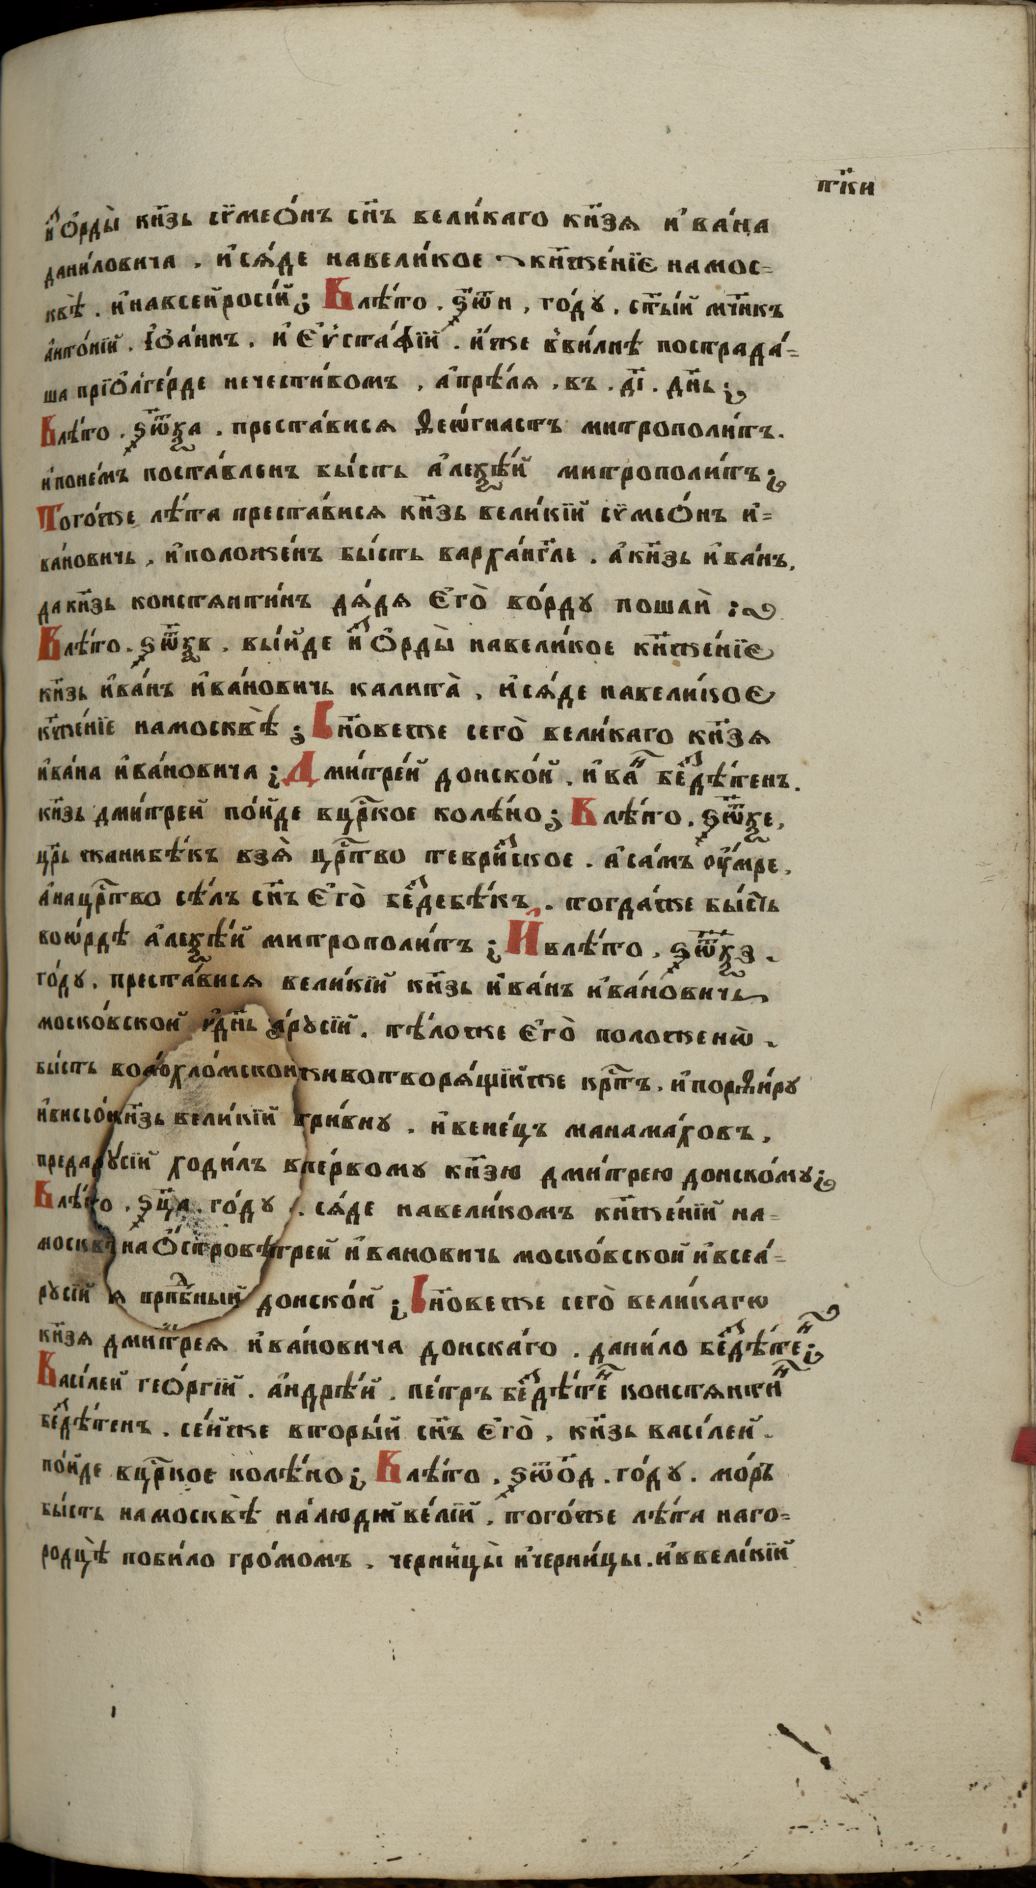 т҃ки
и҆з̾ Ѻ҆рды̀ кн҃зь сѷмеѡ́нъ сн҃ъ вели́каго кн҃зя и҆ва́на
дани́ловича . и҆ся́де навели́кое кн҃же́нїе намос=
квѣ̀ . и҆навсей росі́й ; Влѣ́то . ѕ҃ѿн , го́ду . ст҃ы́й мч҃нкъ
а҆нто́нїй . І҆ѡа́ннъ . и҆ Е҆ѵ́ста́фїй . и҆́же в̾ви́лнѣ пострада́=
ша прїо́лге́рде нечести́вомъ , а҆прѣ́ля . въ . д҃і . дн҃ь ;
Влѣ́то . ѕ҃ѿѯа . преста́вися Ѳеѡ́гнастъ митрополи́тъ .
и҆поне́мъ поста́вленъ бы́сть а҆леѯѣ́й митрополи́тъ ;
Того́же лѣ́та преста́вися кн҃зь вели́кїй сѷмеѡ́нъ и҆=
ва́новичь , и҆положе́нъ бы́сть варха́нг҃ле . а҆кн҃зь и҆ва́нъ ,
да кн҃зь констянти́нъ дя́дя Е҆го̀ во́рду пошлѝ ;
Влѣ́то . ѕ҃ѿѯв . вы́йде и҆з̾ Ѻ҆рды̀ навели́кое кн҃же́нїе
кн҃зь и҆ва́нъ и҆ва́новичь калита̀ , и҆ся́де навели́кое
кн҃же́нїе намосквѣ̀ ; Сн҃овеже сего̀ вели́каго кн҃зя
и҆ва́на и҆ва́новича ; Дми́трей донско́й . и҆ва́н бездѣ́тенъ .
кн҃зь дми́трей по́йде вцр҃кое колѣ́но ; Влѣ́то . ѕ҃ѿѯе ,
цр҃ь жанибѣ́къ взя̀ цр҃тво теври́зское . а҆са́мъ ᲂу҆́мре ,
а҆нацр҃тво сѣ́лъ сн҃ъ Е҆го̀ бердебѣ́къ . тогда́же бы́сть
воѡ҆рдѣ а҆леѯѣ́й митрополи́тъ ; И҆влѣ́то . ѕ҃ѿѯз .
го́ду . преста́вися вели́кїй кн҃зь и҆ва́нъ и҆ва́новичь
моско́вской а҆русі́й . тѣ́ложе Е҆го̀ положенѡ̀
бы́сть животворя́щїйже кр҃тъ . и҆порѳи́ру
кн҃зь вели́кїй гри́вну . и҆вене́цъ манама́ховъ ,
ходи́лъ впе́рвому кн҃зю дми́трею донско́му ;
Влѣ́то . ѕ҃ѡ҃а . го́ду . ся́де навели́комъ кн҃же́нїй на=
москвѣ̀ и҆вановичь моско́вской и҆всеа́=
русі́й донско́й ; Сн҃овеже сего̀ вели́кагѡ
кн҃зя дми́трея и҆ва́новича донска́го . дани́ло бездѣ́те́н ;
Васі́лей гео́ргїй . а҆ндрѣ́й . пе́тръ бездѣ́тен констянти́н
бездѣ́тенъ . се́йже вторы́й сн҃ъ Е҆го̀ , кн҃зь васі́лей .
по́йде вцр҃кое колѣ́но ; Влѣ́то . ѕ҃ѿо҃д . го́ду . мо́ръ
бы́сть намосквѣ̀ на́людѝ ве́лїй , того́же лѣ́та наго=
родцѣ̀ поби́ло гро́момъ . чернцы̀ и҆черни́цы . и҆ввели́кїй